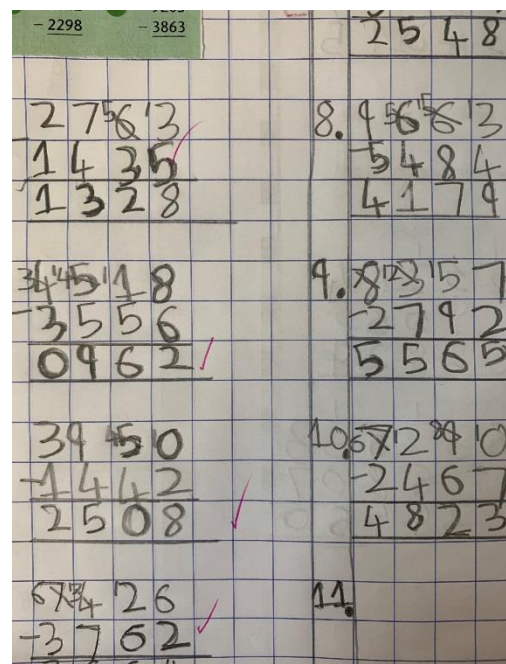 - 2298
- 3863
2548
2 7 5 6 1 3
- 1 4 3 5
1 3 2 8
3 4 14 5 1 1 8
- 3 5 5 6
0 9 6 2
3 9 4 5 1 0
- 1 4 4 2
2 5 0 8
6 7 13 4 1 2 6
- 3 7 6 2
8. 9 5 6 15 6 1 3
- 5 4 8 4
4 1 7 9
9. 7 8 12 3 1 5 7
- 2 7 9 2
5 5 6 5
10. 6 7 1 2 8 9 1 0
- 2 4 6 7
4 8 2 3
11.